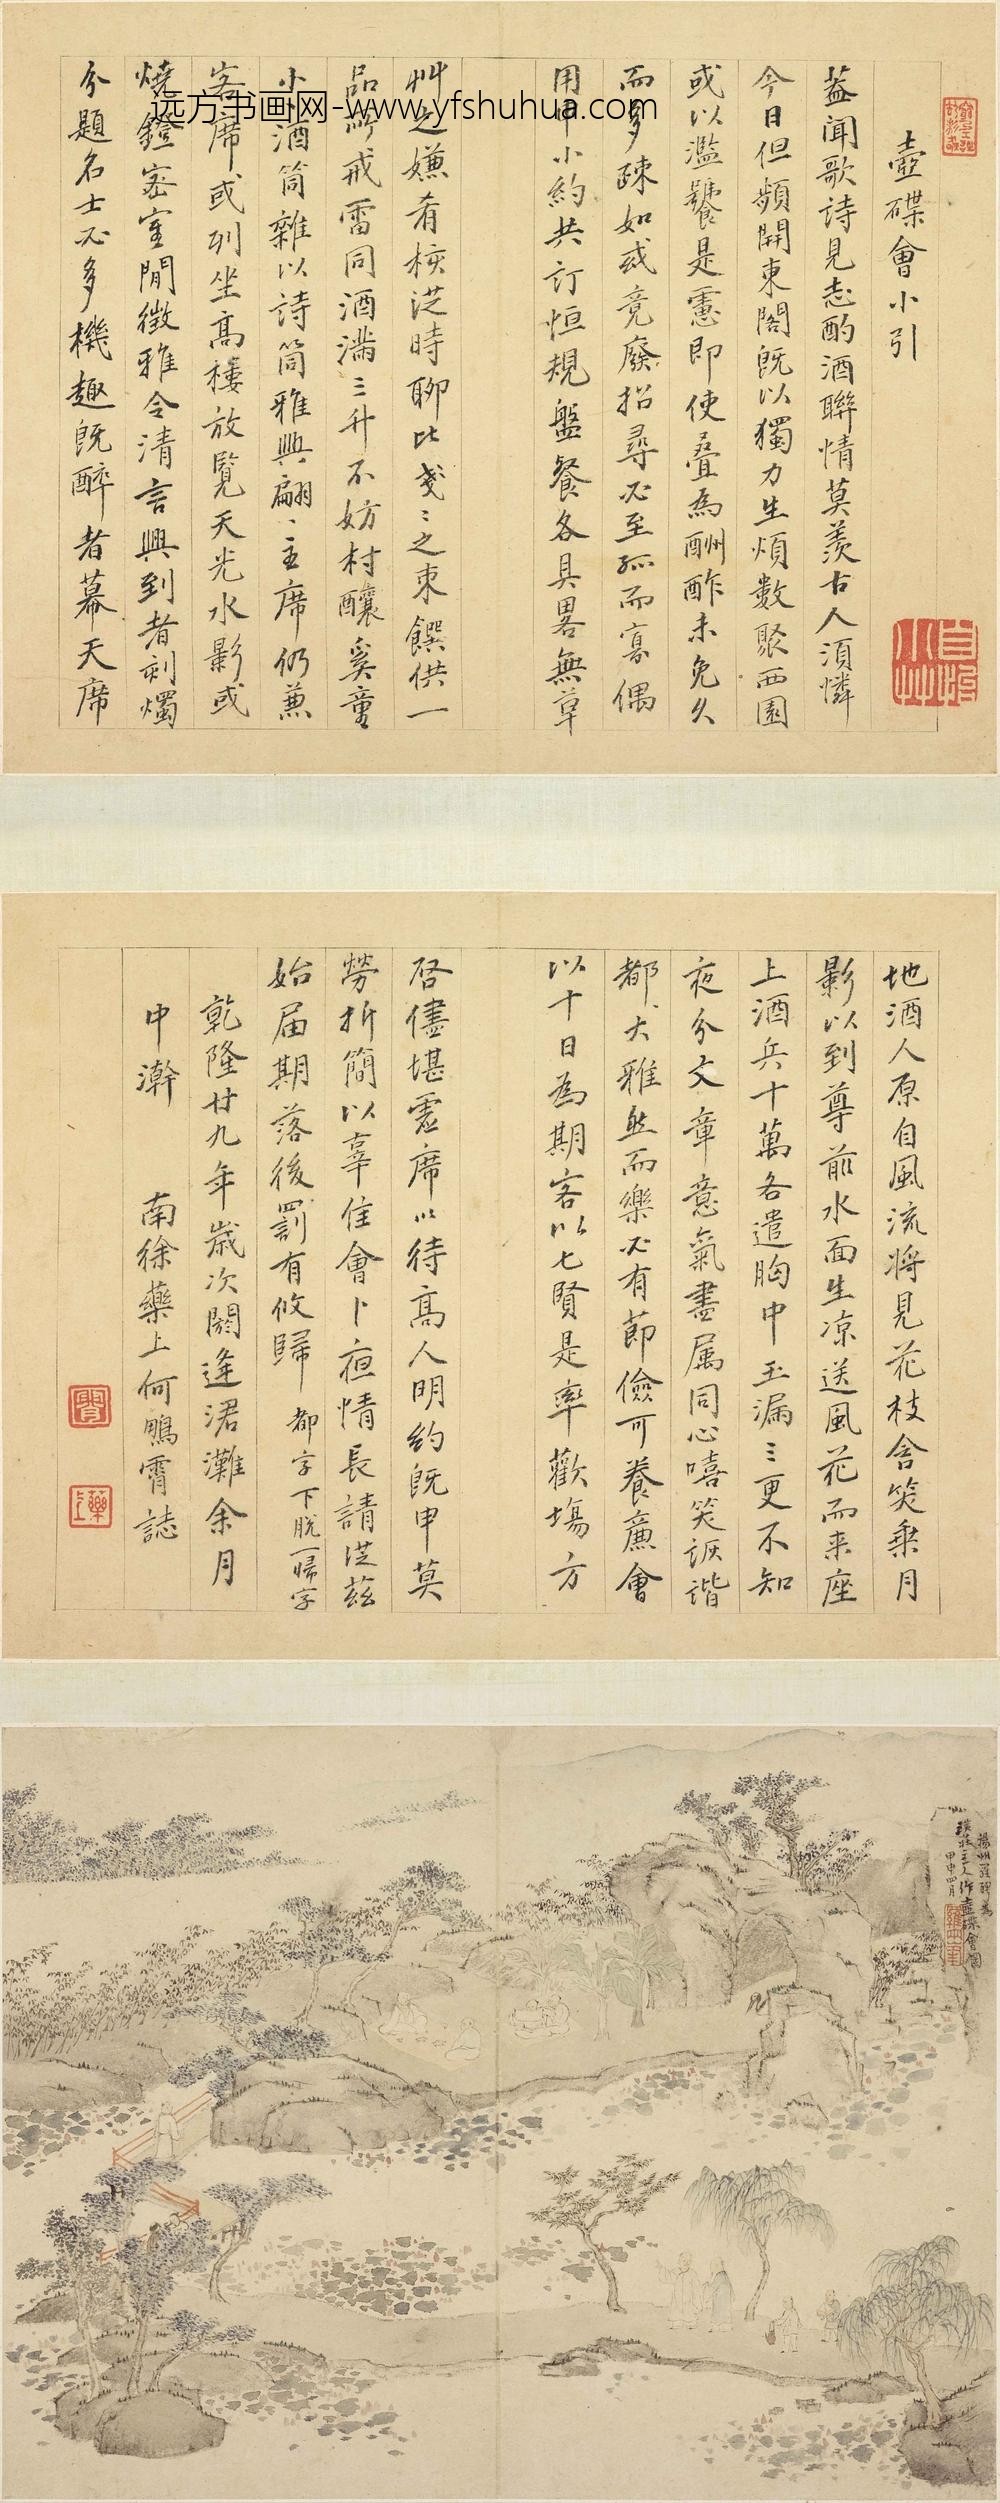 壺碟會小引
蓋聞歌詩見志酌酒聯情莫羨古人須憐
今日但頻開東閣既以獨力生煩數聚西園
或以濫饕是慮即使疊為酬酢未免久
而多疎如或竟廢招尋必至孤而寡偶
用申小約共訂恒規盤餐各具畧無草
艸之嫌肴核從時聊比戔〻之束饌供一
品所戒雷同酒滿三升不妨村釀奚童
小酒筒雜以詩筒雅興翩〻主席仍兼
客席或列坐高樓放覽天光水影或
燒鐙密室閒徵雅令清言興到者刻燭
分題名士必多機趣既醉者幕天席
远方书画网-www.yfshuhua.com
地酒人原自風流將見花枝含笑乘月
影以到尊前水面生凉送風花而来座
上酒兵十萬各遣胸中玉漏三更不知
夜分文章意氣盡属同心嘻笑詼諧
都大雅然而樂必有節儉可養廉會
以十日為期客以七賢是率歡塲方
啓儘堪虛席以待高人明約既申莫
勞折簡以辜佳會卜夜情長請從茲
始届期落後罰有攸歸 都字下脫一歸字
乾隆廿九年歲次閼逢涒灘余月
中澣 南徐藥上何鵬霄誌
揚州羅聘為
溪莊主人作壺碟會圖
甲申四月